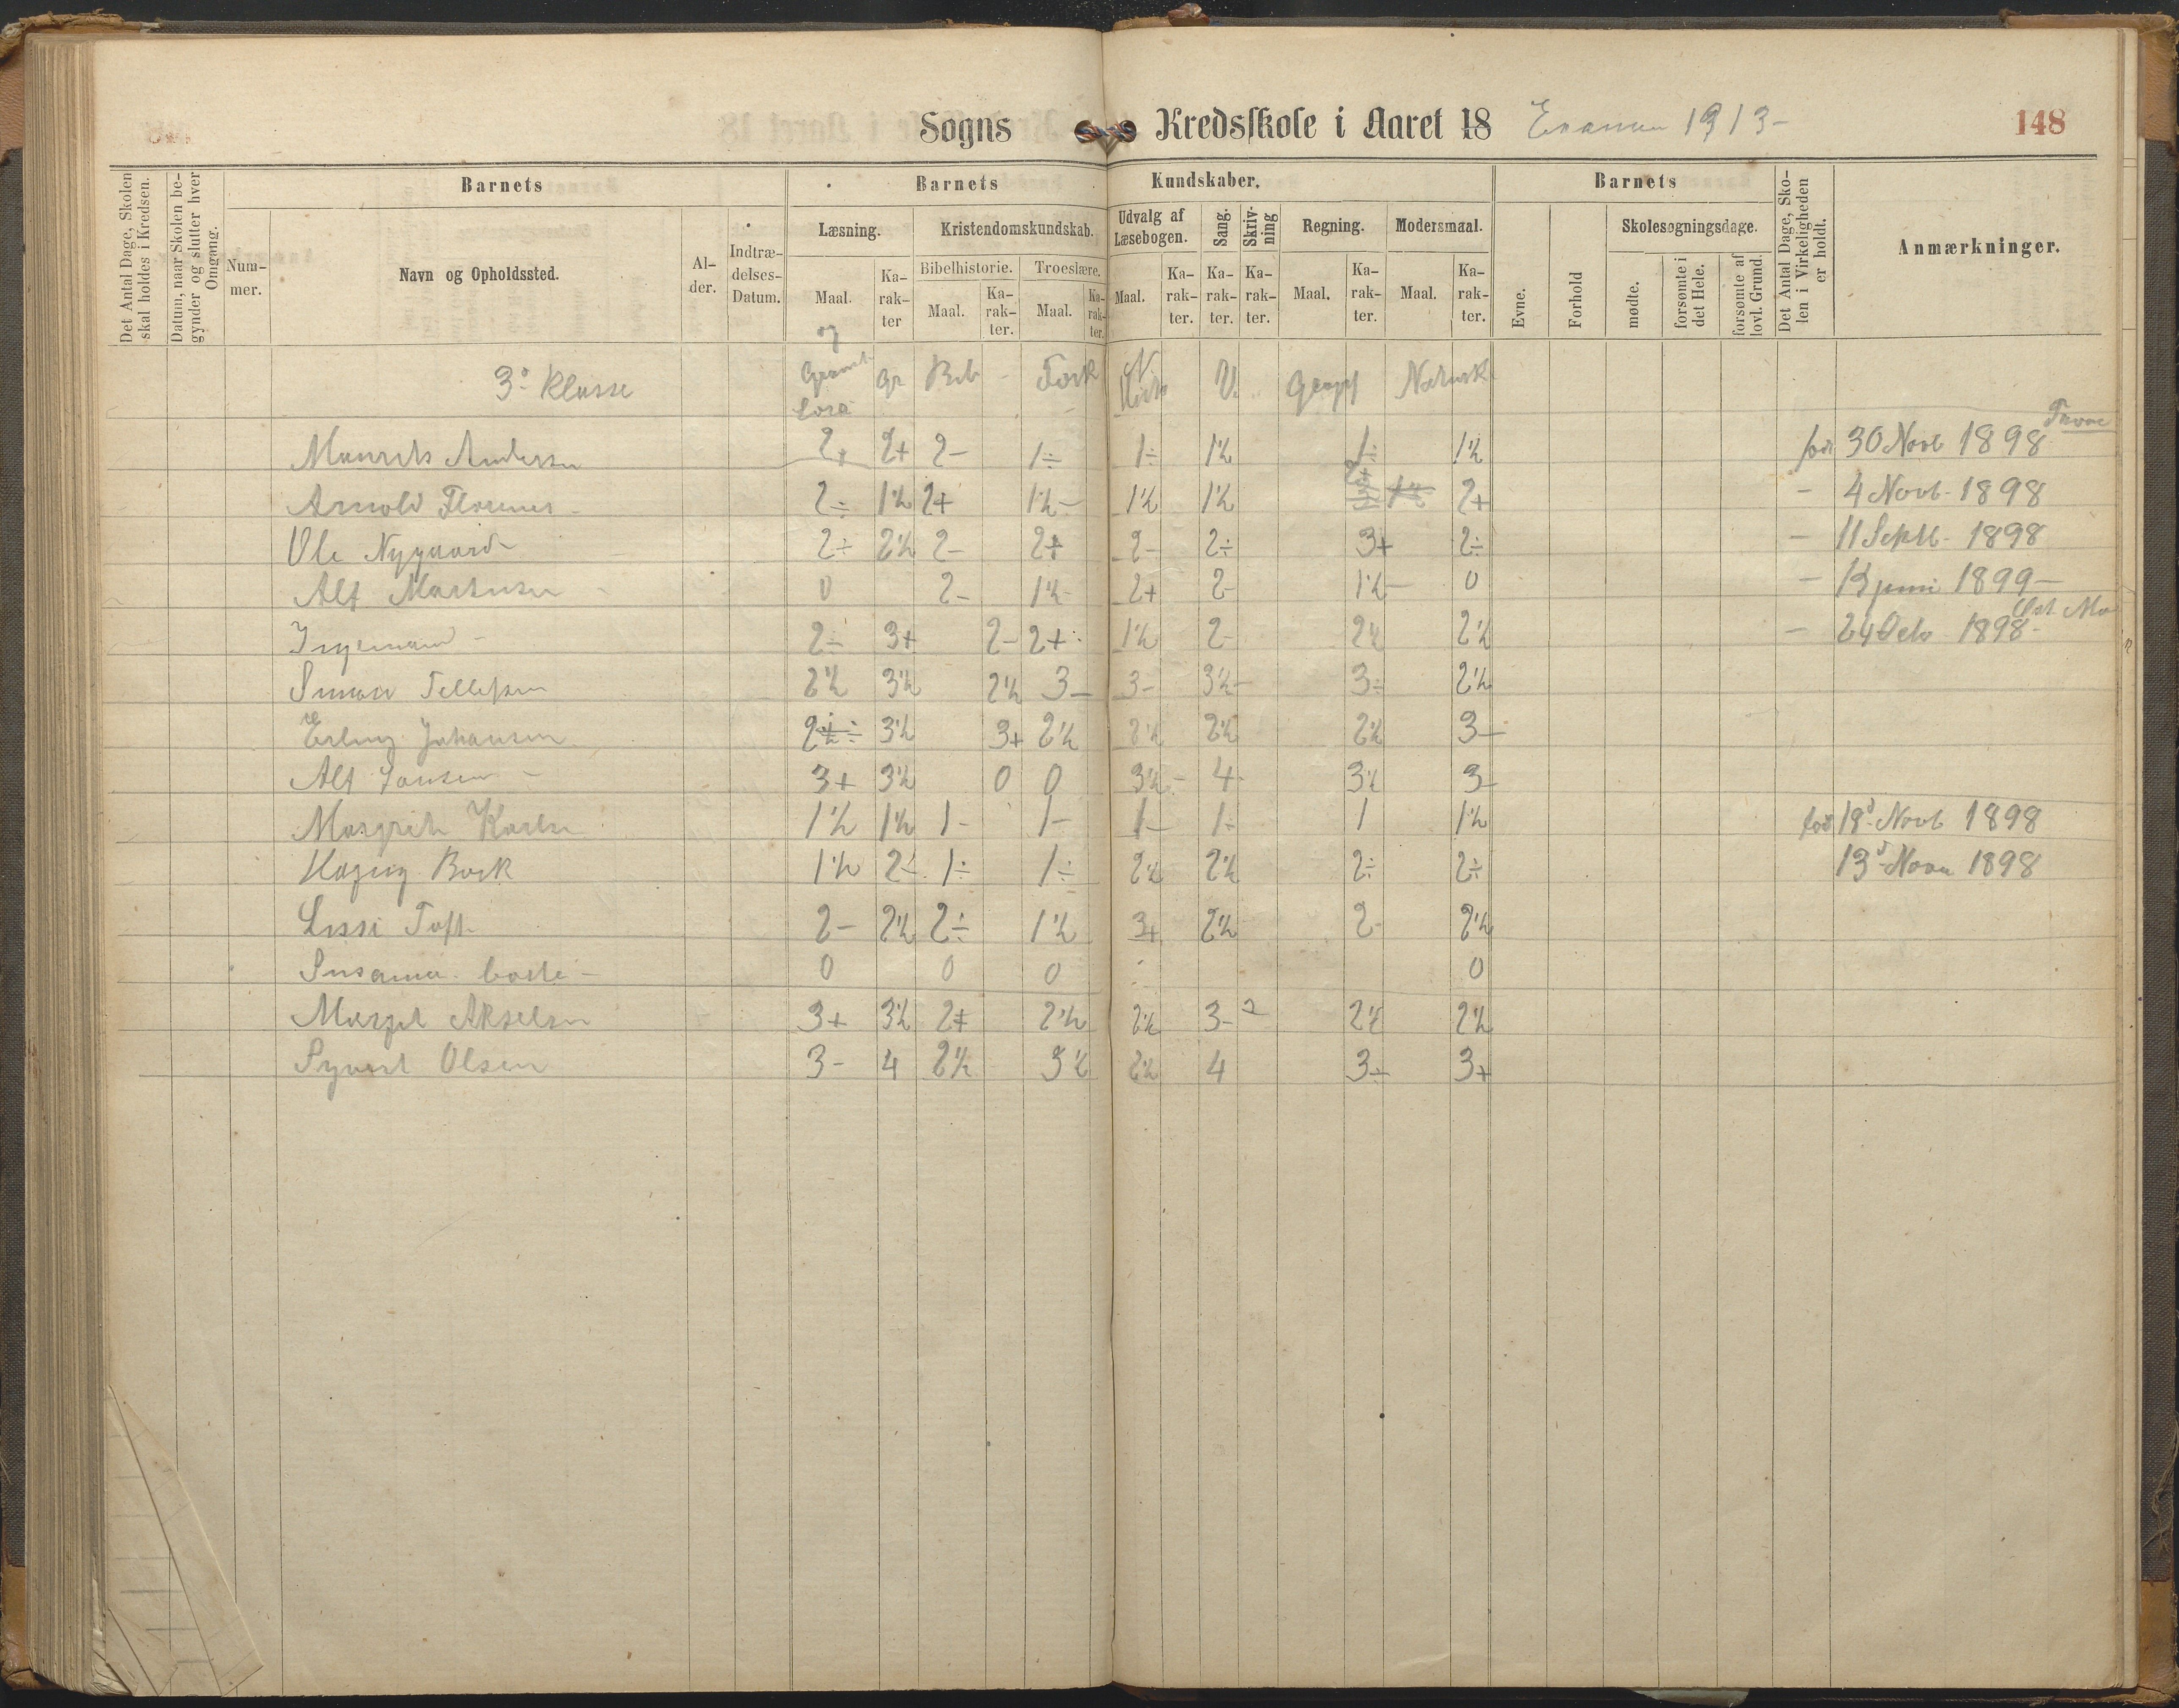 Sogns Kredsskole i Aaret 18 Examen 1913- 148
Det Antal Dage, Skolen skal holdes i Kredsen.
Datum, naar Skolen begynder og slutter hver Omgang.
Barnets
Nummer.
Navn og Opholdssted.
Alder.
Indtrædelses-Datum.
Barnets Kundskaber.
Læsning.
Maal.
Karakter
Kristendomskundskab.
Bibelhistorie.
Maal.
Karakter.
Troeslære.
Maal.
Karakter.
Udvalg af Læsebogen.
Maal.
Karakter.
Sang.
Karakter.
Skrivning
Karakter.
Regning.
Maal.
Karakter.
Modersmaal.
Maal.
Karakter.
Barnets
Evne.
Forhold
Skolesøgningsdage.
mødte.
forsømte i det Hele.
forsømte af lovl. Grund.
Det Antal Dage, Skolen i Virkeligheden er holdt.
Anmærkninger.
3. Klasse Gr Bib Fork Hist V. Geogr
Andersen 2+ 2+ 2- 1÷ 1÷ 1½ 1÷ 1½ 30 Novb 1898
Arnold 2÷ 1½ 2+ 1½- 1½ 1½ 2+ - 4 Novb. 1898
Ole Nygaard 2÷ 2½ 2- 2+ 2- 2÷ 3+ 2÷ - 11 Septb. 1898
Alf 0 2- 1½- 2+ 2- 1½- 0 - juni 1899-
Ingemann - 2- 3+ 2- 2+ 1½ 2- 2½ 2½ - 24 Octo 1898-
Tellefsen 2½ 3½ 2½ 3- 3- 3½- 3÷ 2½
Erling Johansen 3½ 3+ 2½ 2½ 2½ 2½ 3-
Alf Jansen - 3+ 3½ 0 0 3½- 4- 3½ 3-
Margrit 1½ 1½ 1- 1- 1- 1- 1 1½ Novb 1898
Bork 1½ 2÷ 1÷ 1÷ 2½ 2½ 2÷ 2÷ 13 1898
Lissi Toft 2- 2½ 2÷ 1½ 3+ 2½ 2- 2½
0 0 0 0
Margit Akselsen 3+ 3½ 2+ 2½ 2½ 3- 2½ 2½
Syvert Olsen 3- 4 2½ 3½ 2½ 4 3+ 3+